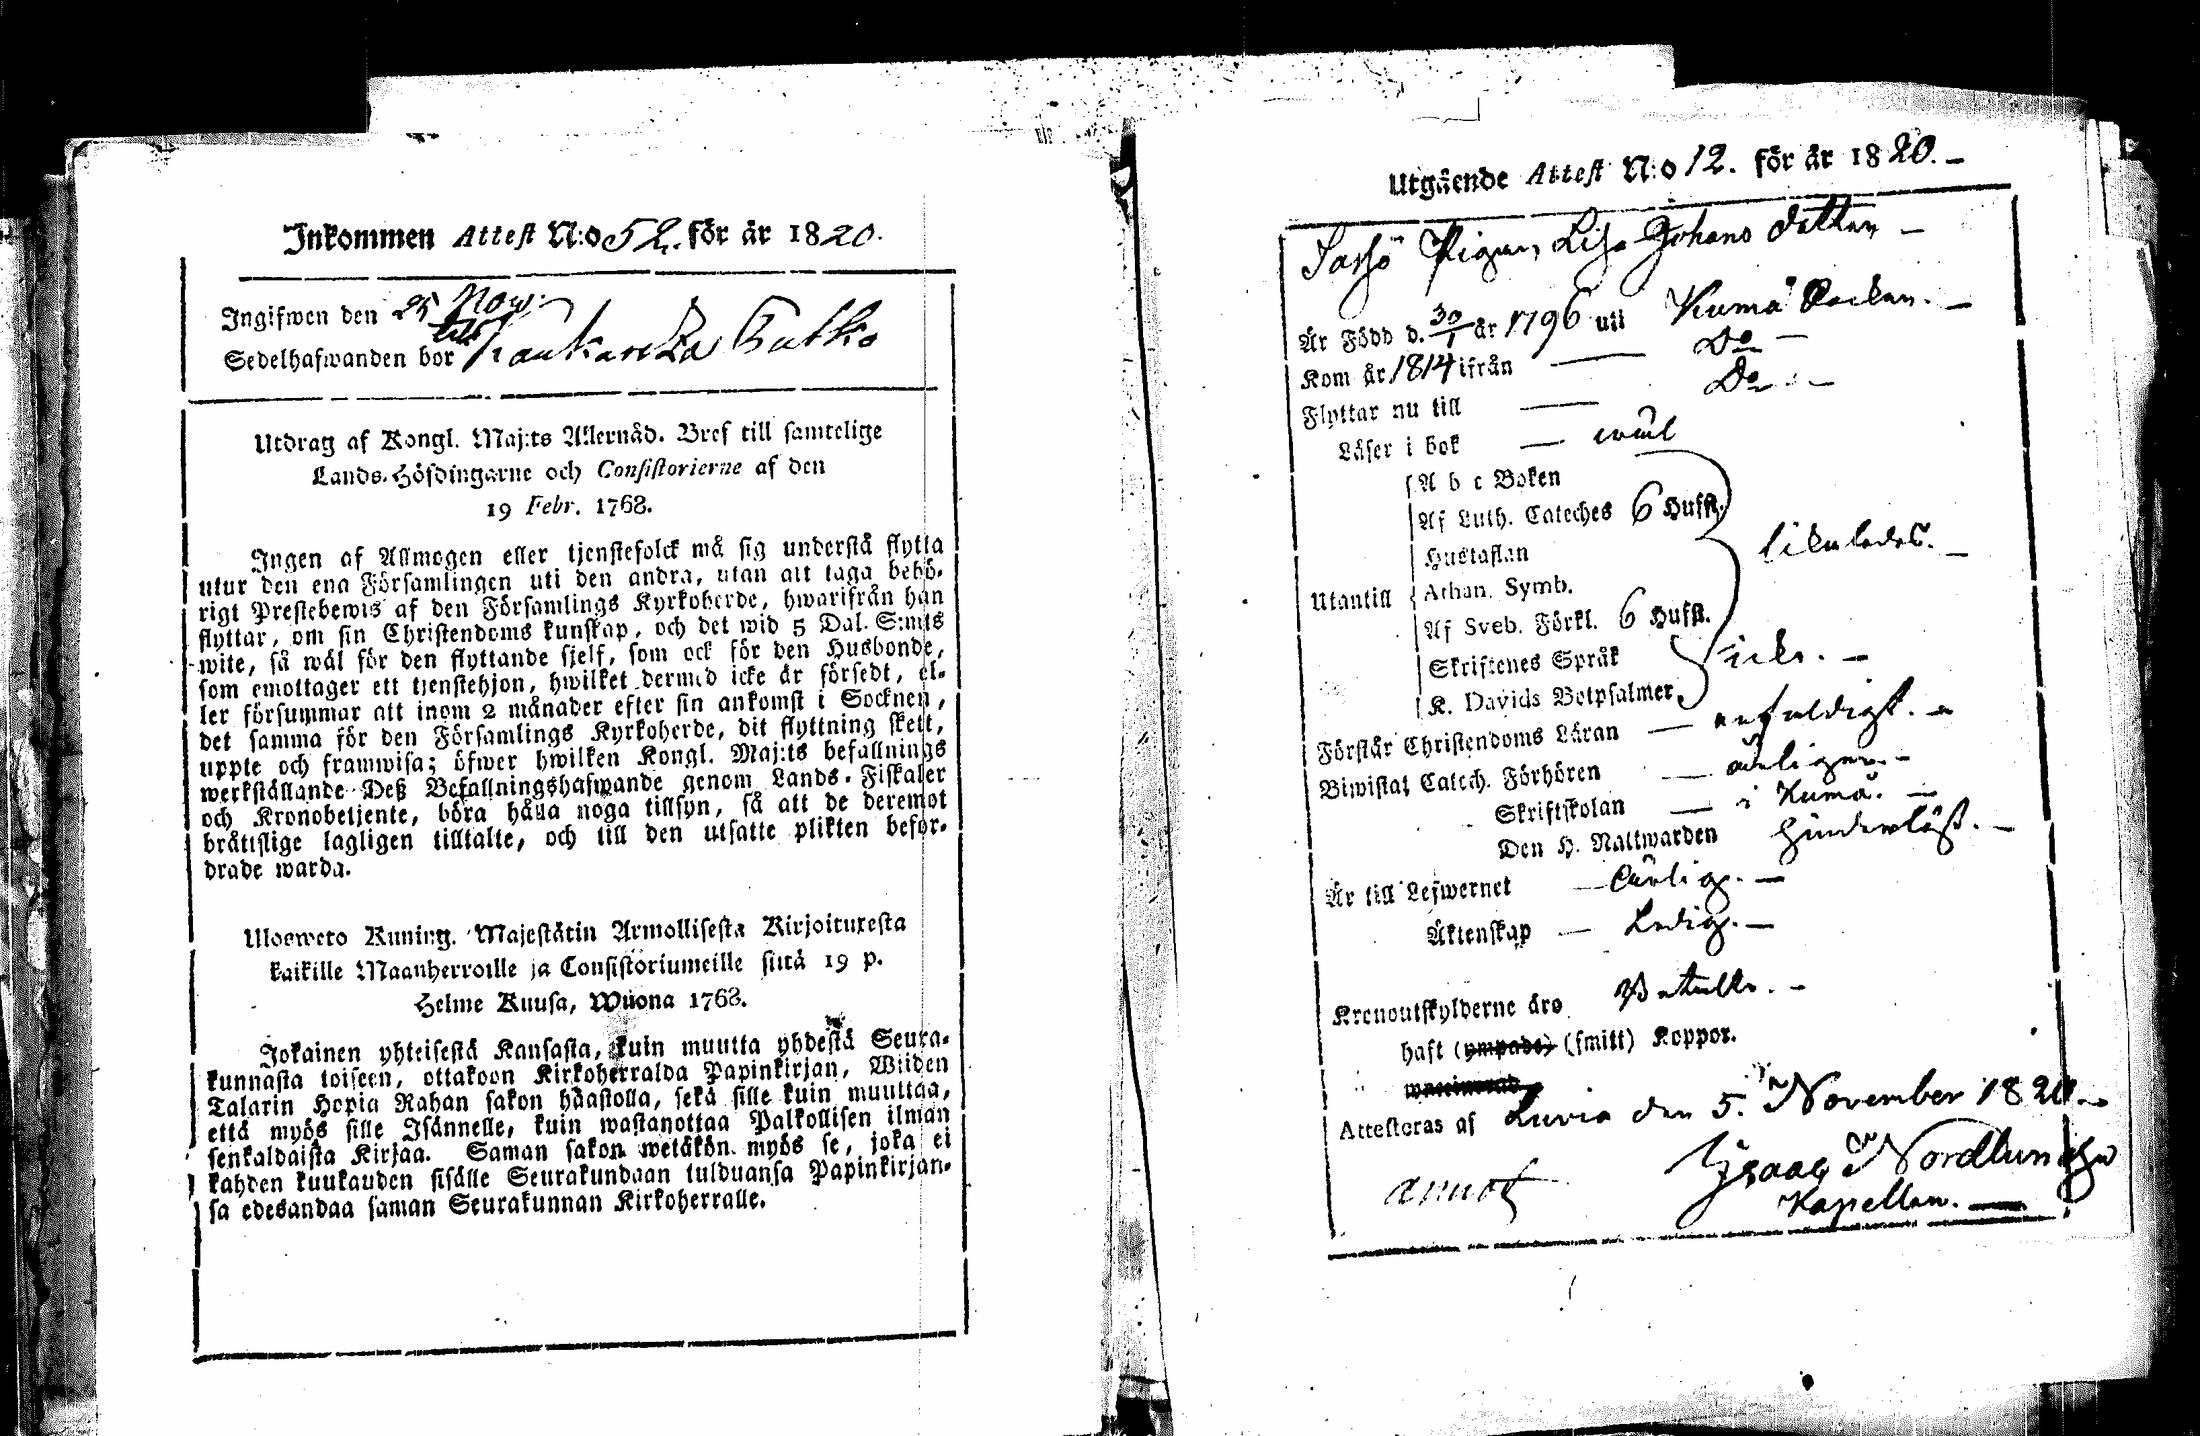 Inkommen Attest N:o 52. för år 1820.
Ingifwen den 25 Nov:
Sedelhafwanden bor
Utdrag af Kongl. Maj:ts Allernåd. Bref till samtelige
Lands-Höfdingarne och Consistorierne af den
19 Febr. 1768.
Ingen af Allmogen eller tjenstefolck må sig understå flytta
utur den ena Församlingen uti den andra, utan att taga behö-
rigt Prestebewis af den Församlings Kyrkoherde, hwarifrån han
flyttar, om sin Christendoms kunskap, och det wid 5 Dal. S:mts
wite, så wäl för den flyttande sjelf, som ock för den Husbonde,
som emottager ett tjenstehjon, hwilket dermed icke är försedt, el-
ler försummar att inom 2 månader efter sin ankomst i Socknen,
det samma för den Församlings Kyrkoherde, dit flyttning skett,
uppte och framwisa; öfwer hwilken Kongl. Maj:ts befallnings
werkställande Deß Befallningshafwande genom Lands-Fiskaler
och Kronobetjente, böra hålla noga tillsyn, så att de deremot
bråttslige lagligen tilltalte, och till den utsatte plikten befor-
drade warda.
Ulosweto Kuning. Majestätin Armollisesta Kirjoituxesta
kaikille Maanherroille ja Consistoriumeille siitä 19 p.
Helme Kuusa, Wuona 1768.
Jokainen yhteisestä Kansasta, kuin muutta yhdestä Seura-
kunnasta toiseen, ottakoon Kirkoherralda Papinkirjan, Wiiden
Talarin Hopia Rahan sakon häastolla, sekä sille kuin muuttaa,
että myös sille Isännelle, kuin wastanottaa Palkollisen ilman
senkaldaista Kirjaa. Saman sakon wetäkön myös se, joka ei
kahden kuukauden sisälle Seurakundaan tulduansa Papinkirjan-
sa edesandaa saman Seurakunnan Kirkoherralle.
Utgående Attest N:o 12. för år 1820.
Pigan Lisa Johans dotter
Är Född d. 30/1 år 1796 uti Kumå Socken.
Kom år 1814 ifrån Do
Flyttar nu till Do
Läser i bok wäl
A b c Boken
Af Luth. Cateches 6 Hufst.
Hustaflan likaledes.
Utantill Athan. Symb.
Af Sveb. Förkl. 6 Hufst.
Skriftenes Språk icke.
K. Davids Botpsalmer
Förstår Christendoms Läran enfaldigt.
Biwistat Catech. Förhören årligen.
Skriftskolan i Kumå.
Den H. Nattwarden hinderlöst.
Är till Lefwernet ärlig.
Äktenskap Ledig.
Kronoutskylderne äro Betalte.
haft (ympade) (smitt) Koppor.
Attesteras af Luvia den 5. November 1820.
Isaac Nordlund
Kapellan.